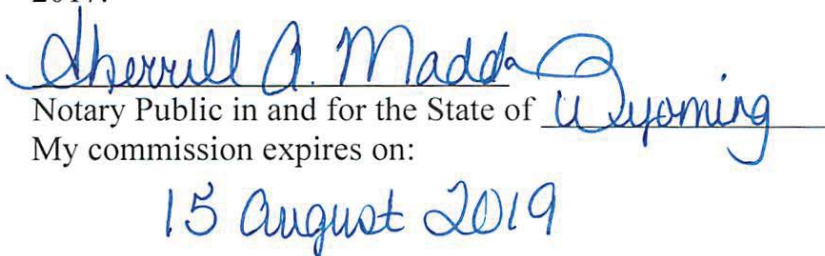 2017.
Sherrill A. Madd
Notary Public in and for the State of Wyoming
My commission expires on:
15 August 2019